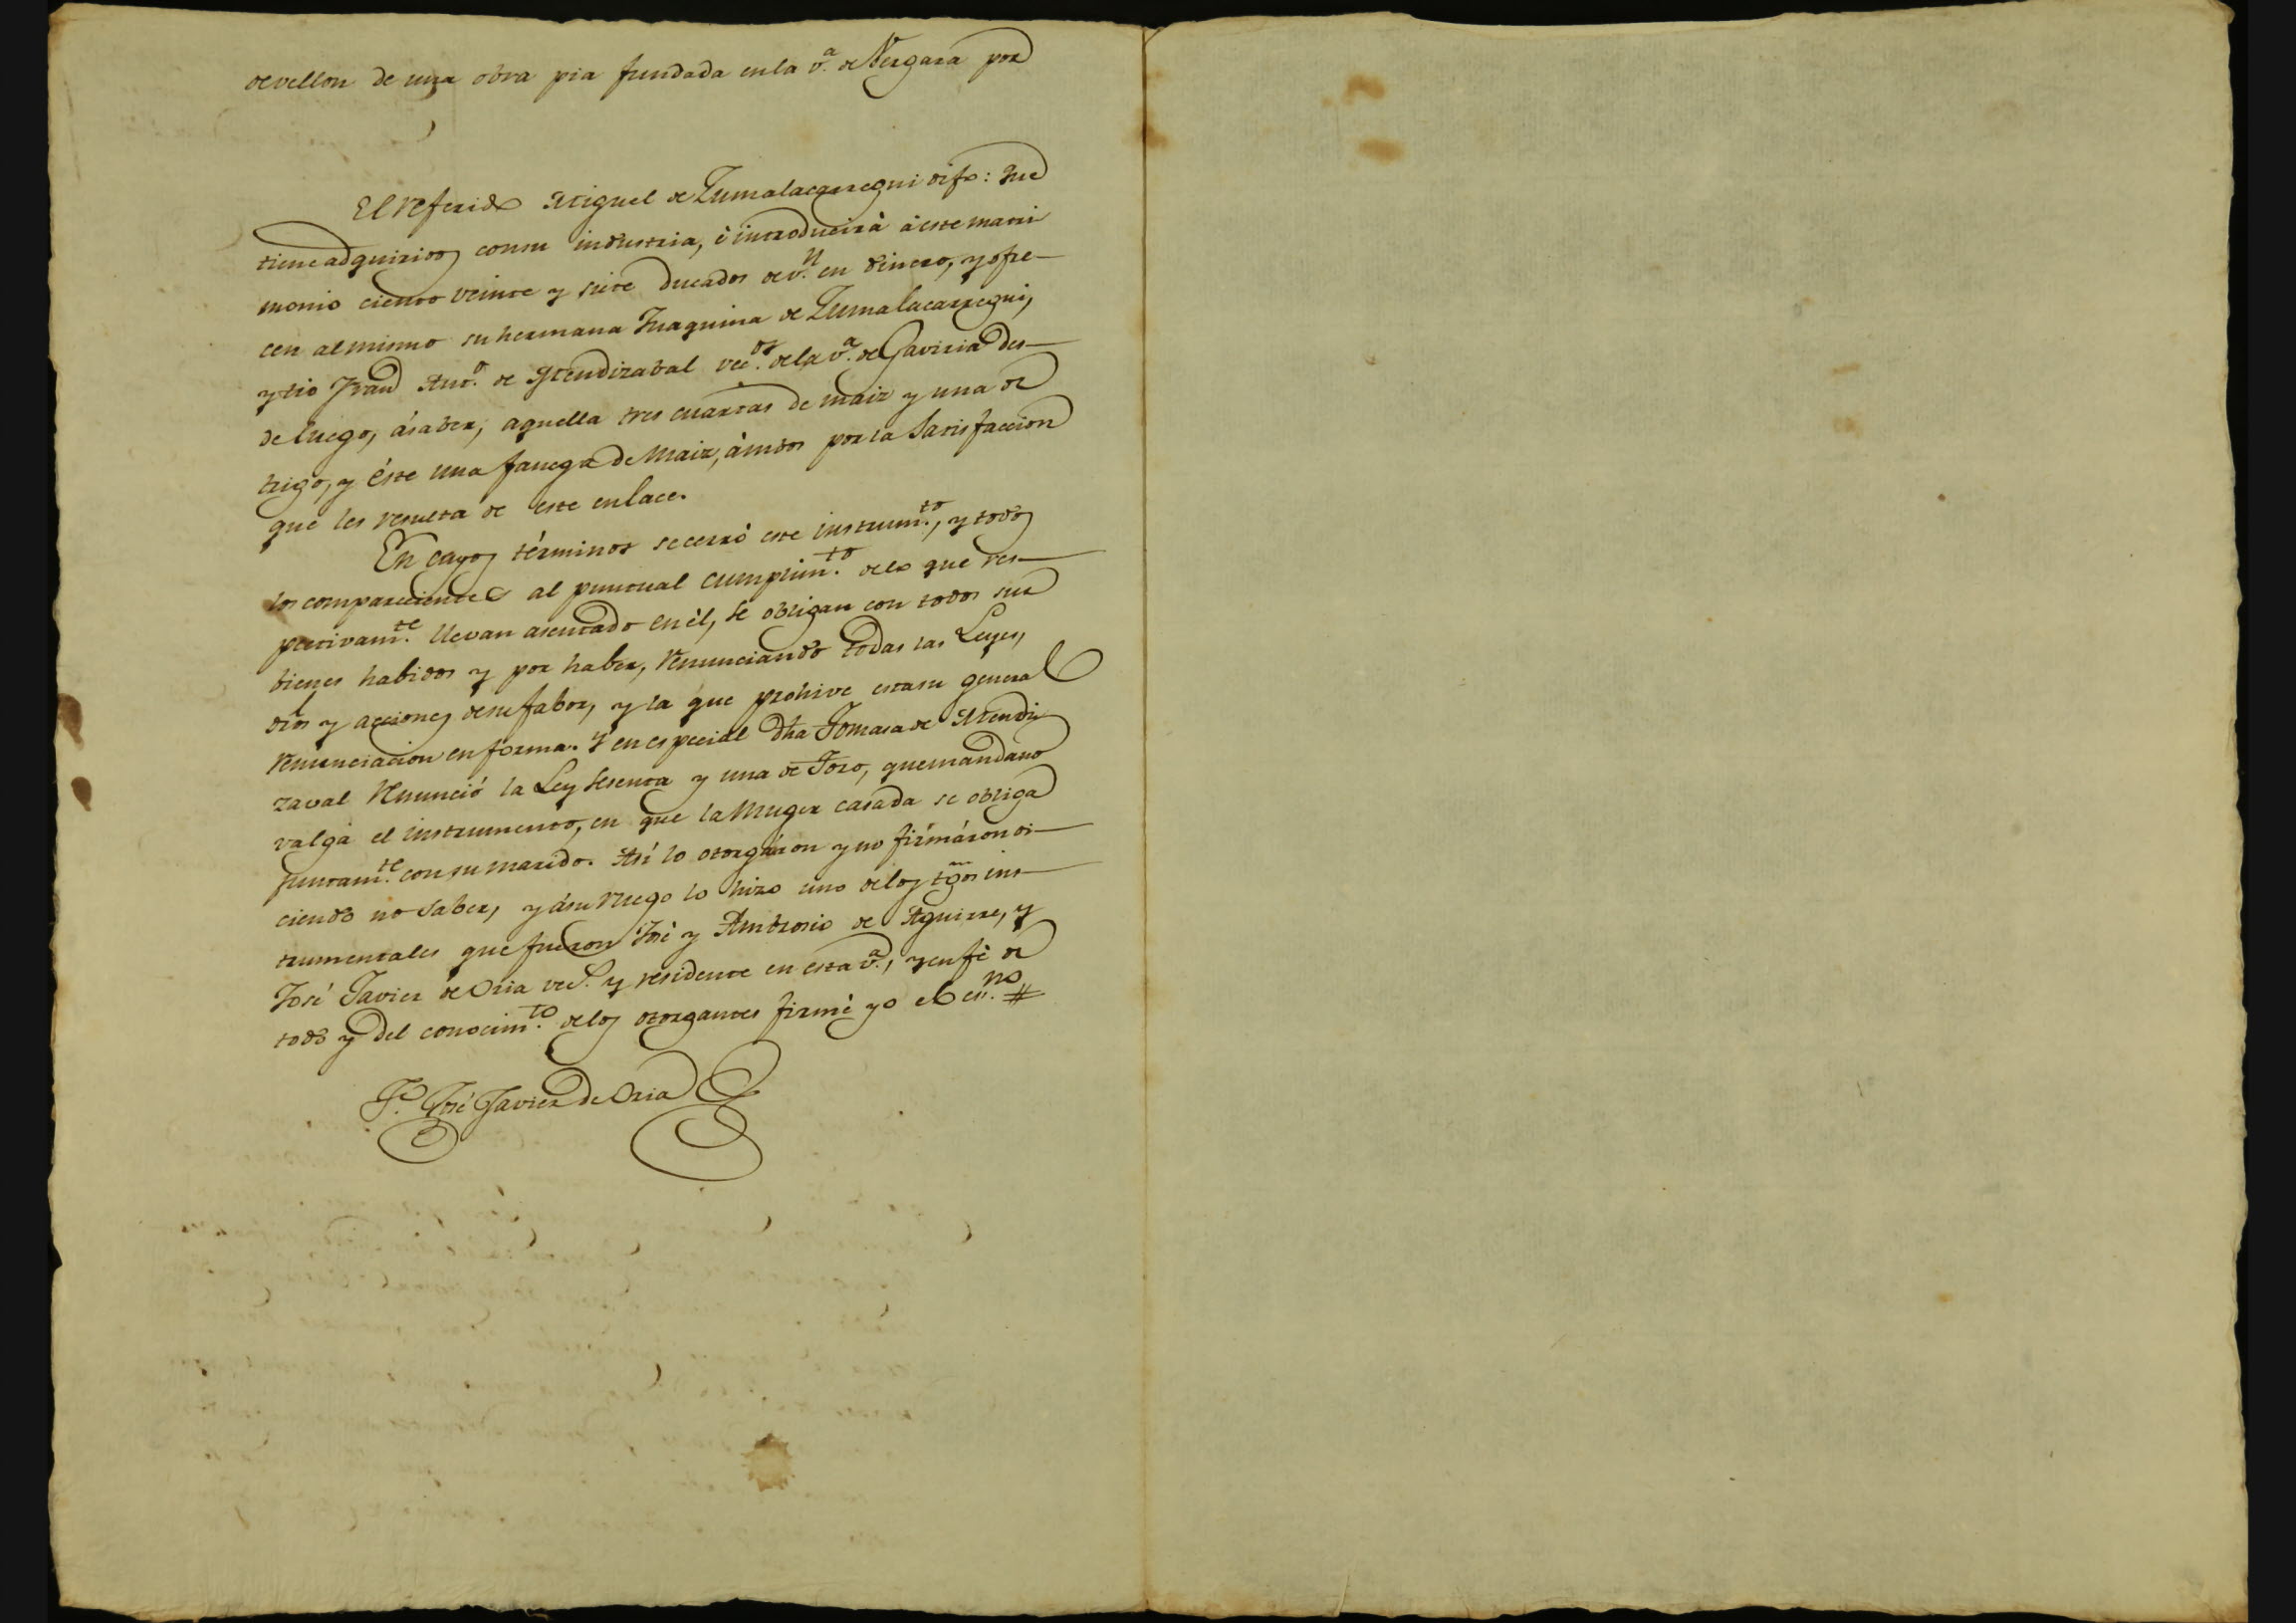 de vellon de una obra pia fundada en la v.ª de Vergara por
El referido Miguel de Zumalacarregui dijo: Que
tiene adquiridos con su industria, è introducirà à este matri
monio ciento veinte y siete ducados de v.n en dinero, y ofre—
cen al mismo su hermana Juaquina de Zumalacarregui,
y tio Juan Ant.º de Mendizabal vec.os de la v.ª de Gaviria des—
de luego, ásaber, aquella tres cuartas de maiz y una de
trigo, y éste una fanega de maiz, àmbos por la satisfaccion
que les resulta de este enlace.
En cuyos términos se cerró este instrum.to, y todos
los comparecientes al puntual cumplim.to de lo que res—
pectivam.te llevan asentado en èl, se obligan con todos sus
bienes habidos y por haber, renunciando todas las Leyes,
dros y acciones de su fabor, y la que prohive esta su general
renunciacion en forma. Y en especial dha Tomasa de Mendi
zaval renunció la Ley sesenta y una de Toro, que mandano
valga el instrumento, en que la Muger casada se obliga
juntam.te con su marido. Así lo otorgáron y no firmáron di—
ciendo no saber, y ásu ruego lo hizo uno de los tgos ins—
trumentales que fueron José y Ambrosio de Aguirre, y
José Javier de Oria vec.s y residente en esta v.ª, y en fè de
todo y del conocim.to de los otorgantes firmè yo el es.no #
T.º José Javier de Oria